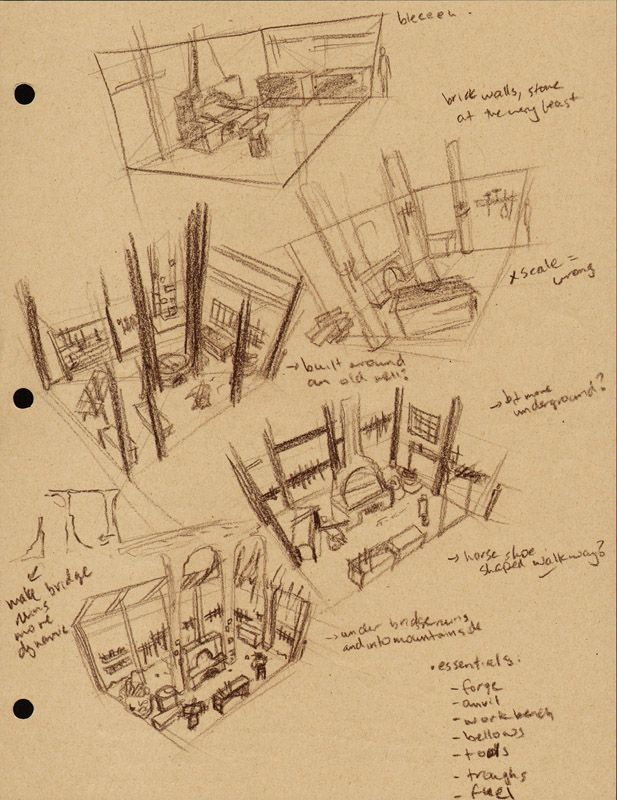 bleeeeh.
brick walls, stone
at the very least
x scale =
wrong
→ built around
an old well?
→ bit more
underground?
→ horse shoe
shaped walkway?
make bridge
ruins
more
dynamic
→ under bridge ruins
and into mountainside
• essentials:
- forge
- anvil
- work bench
- bellows
- tools
- troughs
- fuel